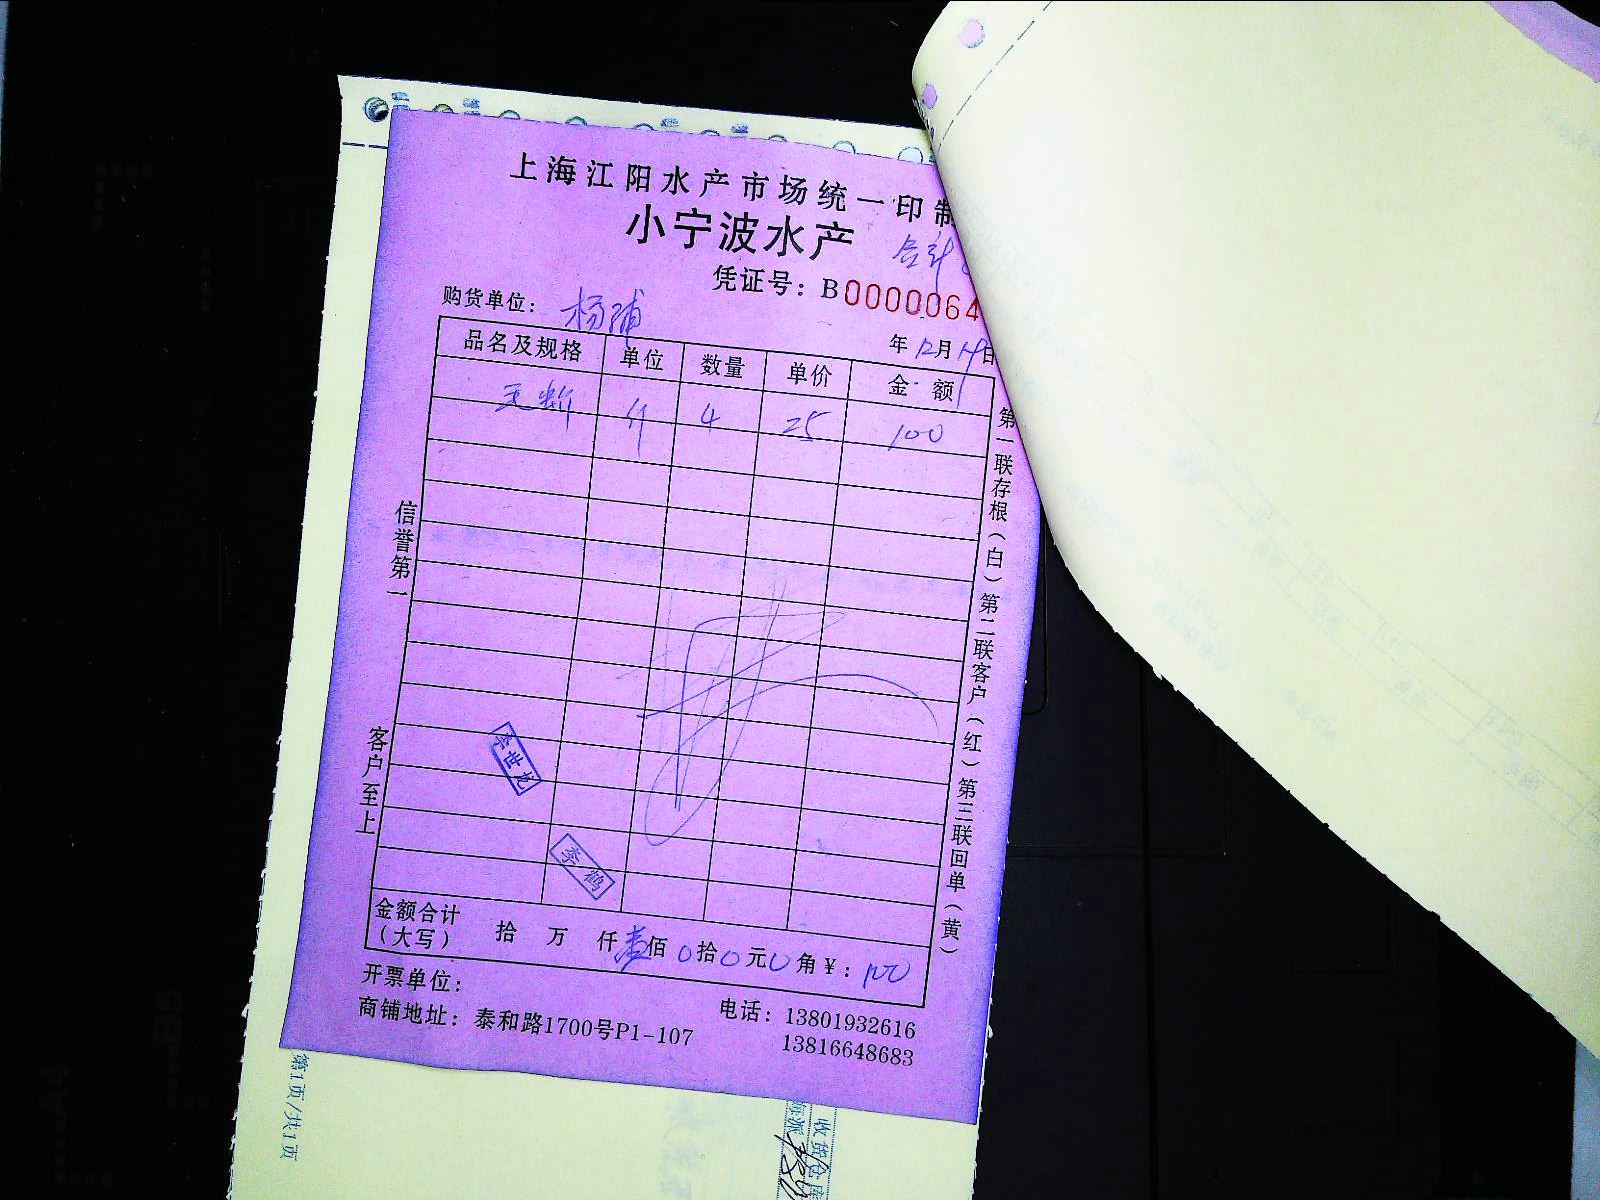 上海江阳水产市场统一印制
小宁波水产
合计
凭证号：B0000064
购货单位：杨浦
年12月19日
品名及规格 单位 数量 单价 金额
斤 4 25 100
信誉第一
客户至上
第一联存根（白）第二联客户（红）第三联回单（黄）
李世龙
李鹤
金额合计（大写） 拾 万 仟壹佰0拾0元0角¥：100
开票单位：
商铺地址：泰和路1700号P1-107
电话：13801932616
13816648683
第1页/共1页
收货仓库